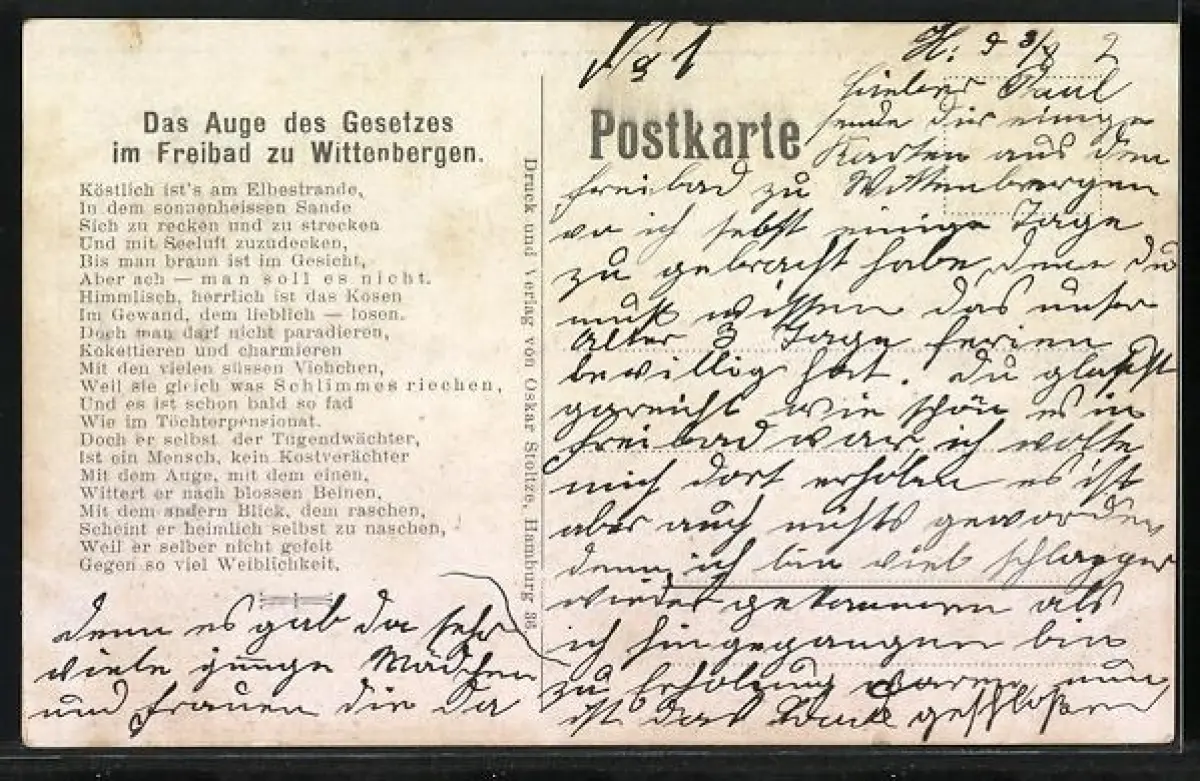 Das Auge des Gesetzes
im Freibad zu Wittenbergen.
Köstlich ist's am Elbestrande,
In dem sonnenheissen Sande
Sich zu recken und zu strecken
Und mit Seeluft zuzudecken,
Bis man braun ist im Gesicht,
Aber ach — man soll es nicht.
Himmlisch, herrlich ist das Kosen
Im Gewand, dem lieblich — losen.
Doch man darf nicht paradieren,
Kokettieren und charmieren
Mit den vielen süssen Viehchen,
Weil sie gleich was Schlimmes riechen,
Und es ist schon bald so fad
Wie im Töchterpensionat.
Doch er selbst der Tugendwächter,
Ist ein Mensch, kein Kostverächter
Mit dem Auge, mit dem einen,
Wittert er nach blossen Beinen,
Mit dem andern Blick, dem raschen,
Scheint er heimlich selbst zu naschen,
Weil er selber nicht gefeit
Gegen so viel Weiblichkeit.
Druck und Verlag von Oskar Stoltze, Hamburg 36
Postkarte
No 1
H:
Lieber Paul
sende dir einige
Karten aus dem
freibad zu Wittenbergen
wo ich selbst einige Tage
zu gebracht habe, denn du
mußt wissen das unser
Alter 3 Tage ferien
bewillig hat. du glaubst
garnicht wie schön es in
freibad war, ich wollte
mich dort erholen es ist
aber auch nichts geworden
denn ich bin viel schlapper
wieder gekommen als
ich hingegangen bin
zu Erholung waren nun
ist das geschloßen
denn es gab da sehr
viele junge Mädchen
und frauen die da